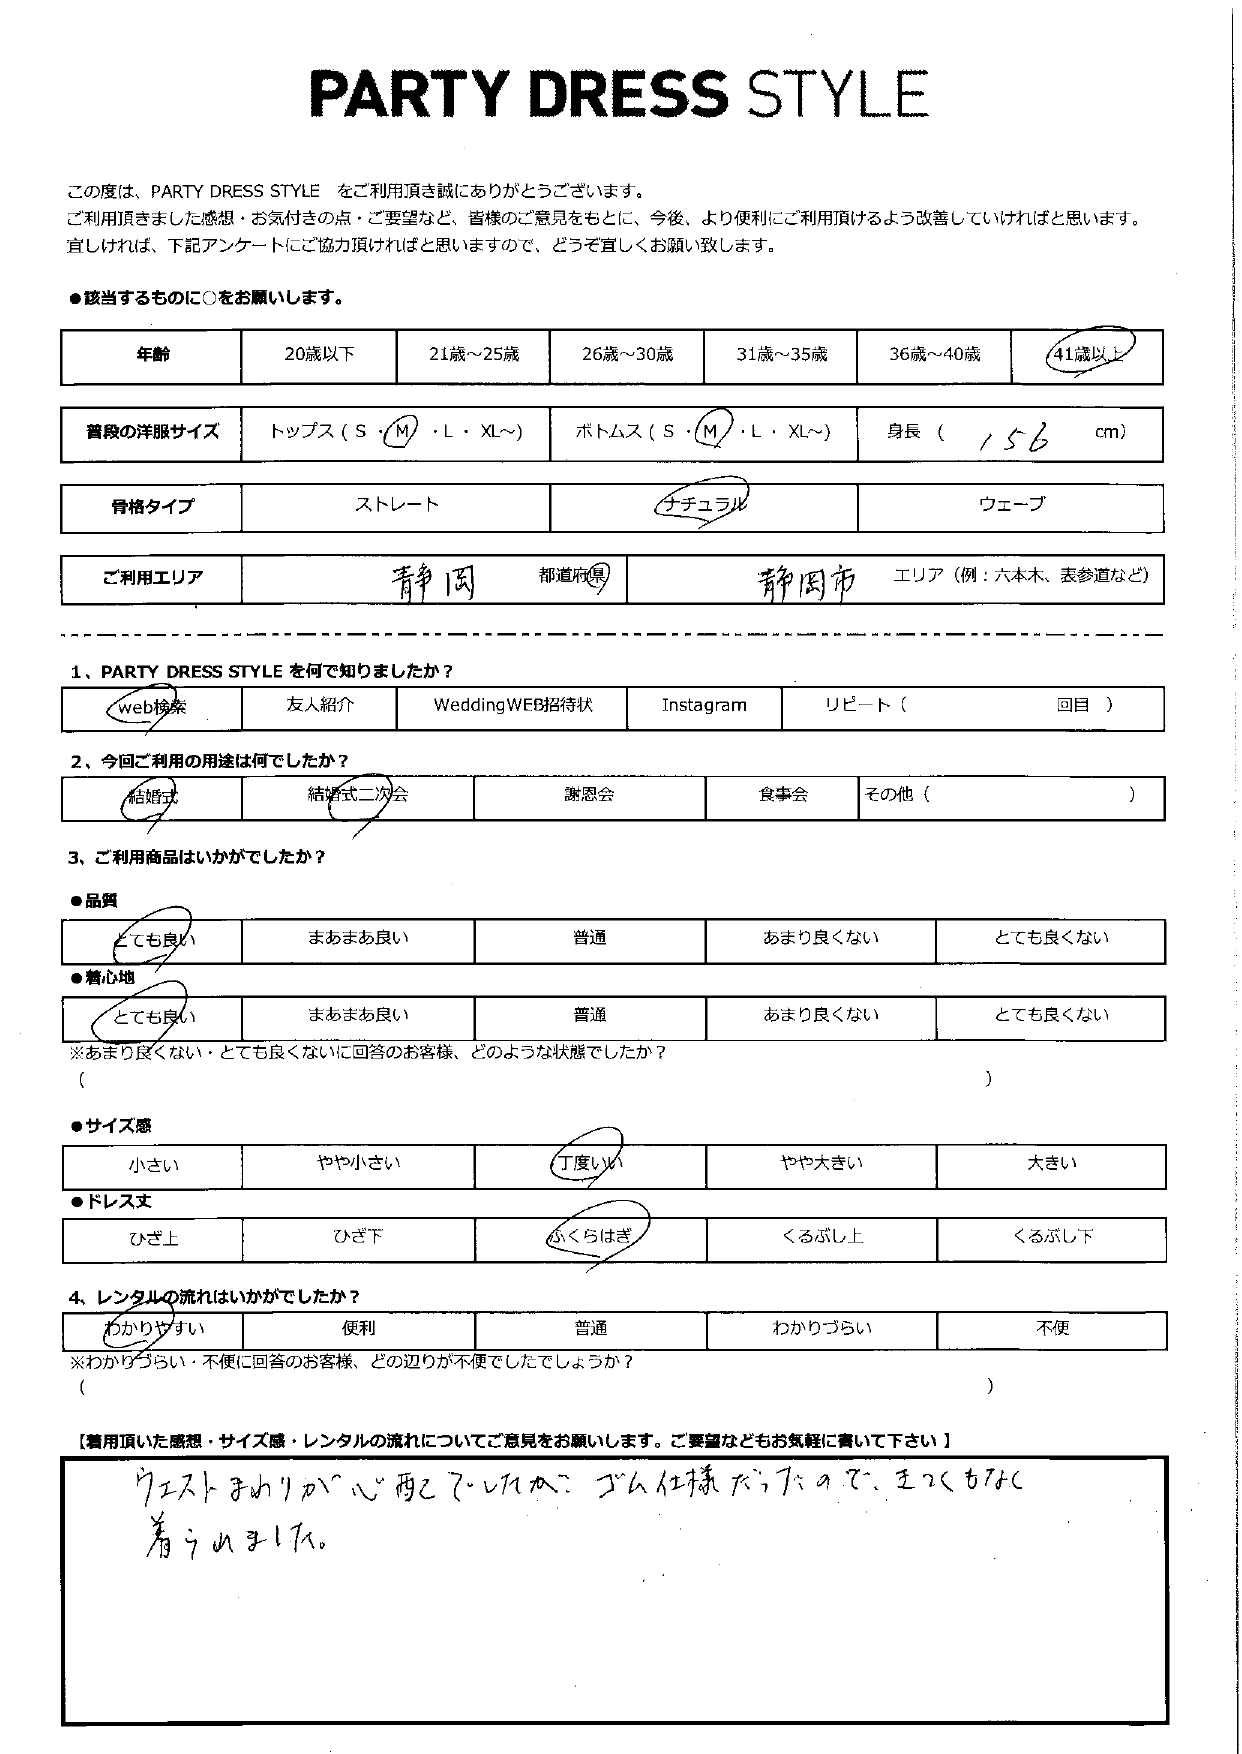 PARTY DRESS STYLE
この度は、PARTY DRESS STYLE　をご利用頂き誠にありがとうございます。
ご利用頂きました感想・お気付きの点・ご要望など、皆様のご意見をもとに、今後、より便利にご利用頂けるよう改善していければと思います。
宜しければ、下記アンケートにご協力頂ければと思いますので、どうぞ宜しくお願い致します。
●該当するものに○をお願いします。
年齢 20歳以下 21歳～25歳 26歳～30歳 31歳～35歳 36歳～40歳 41歳以上
普段の洋服サイズ トップス ( S ・ M ・ L ・ XL～) ボトムス ( S ・ M ・ L ・ XL～) 身長 ( 156 cm)
骨格タイプ ストレート ナチュラル ウェーブ
ご利用エリア 静岡 都道府県 静岡市 エリア（例：六本木、表参道など）
1、PARTY DRESS STYLE を何で知りましたか？
web検索 友人紹介 WeddingWEB招待状 Instagram リピート（ 回目 ）
2、今回ご利用の用途は何でしたか？
結婚式 結婚式二次会 謝恩会 食事会 その他（ ）
3、ご利用商品はいかがでしたか？
●品質
とても良い まあまあ良い 普通 あまり良くない とても良くない
●着心地
とても良い まあまあ良い 普通 あまり良くない とても良くない
※あまり良くない・とても良くないに回答のお客様、どのような状態でしたか？
( )
●サイズ感
小さい やや小さい 丁度いい やや大きい 大きい
●ドレス丈
ひざ上 ひざ下 ふくらはぎ くるぶし上 くるぶし下
4、レンタルの流れはいかがでしたか？
わかりやすい 便利 普通 わかりづらい 不便
※わかりづらい・不便に回答のお客様、どの辺りが不便でしたでしょうか？
( )
【着用頂いた感想・サイズ感・レンタルの流れについてご意見をお願いします。ご要望などもお気軽に書いて下さい 】
ウエストまわりが心配でしたが ゴム仕様だったので、きつくもなく
着られました。